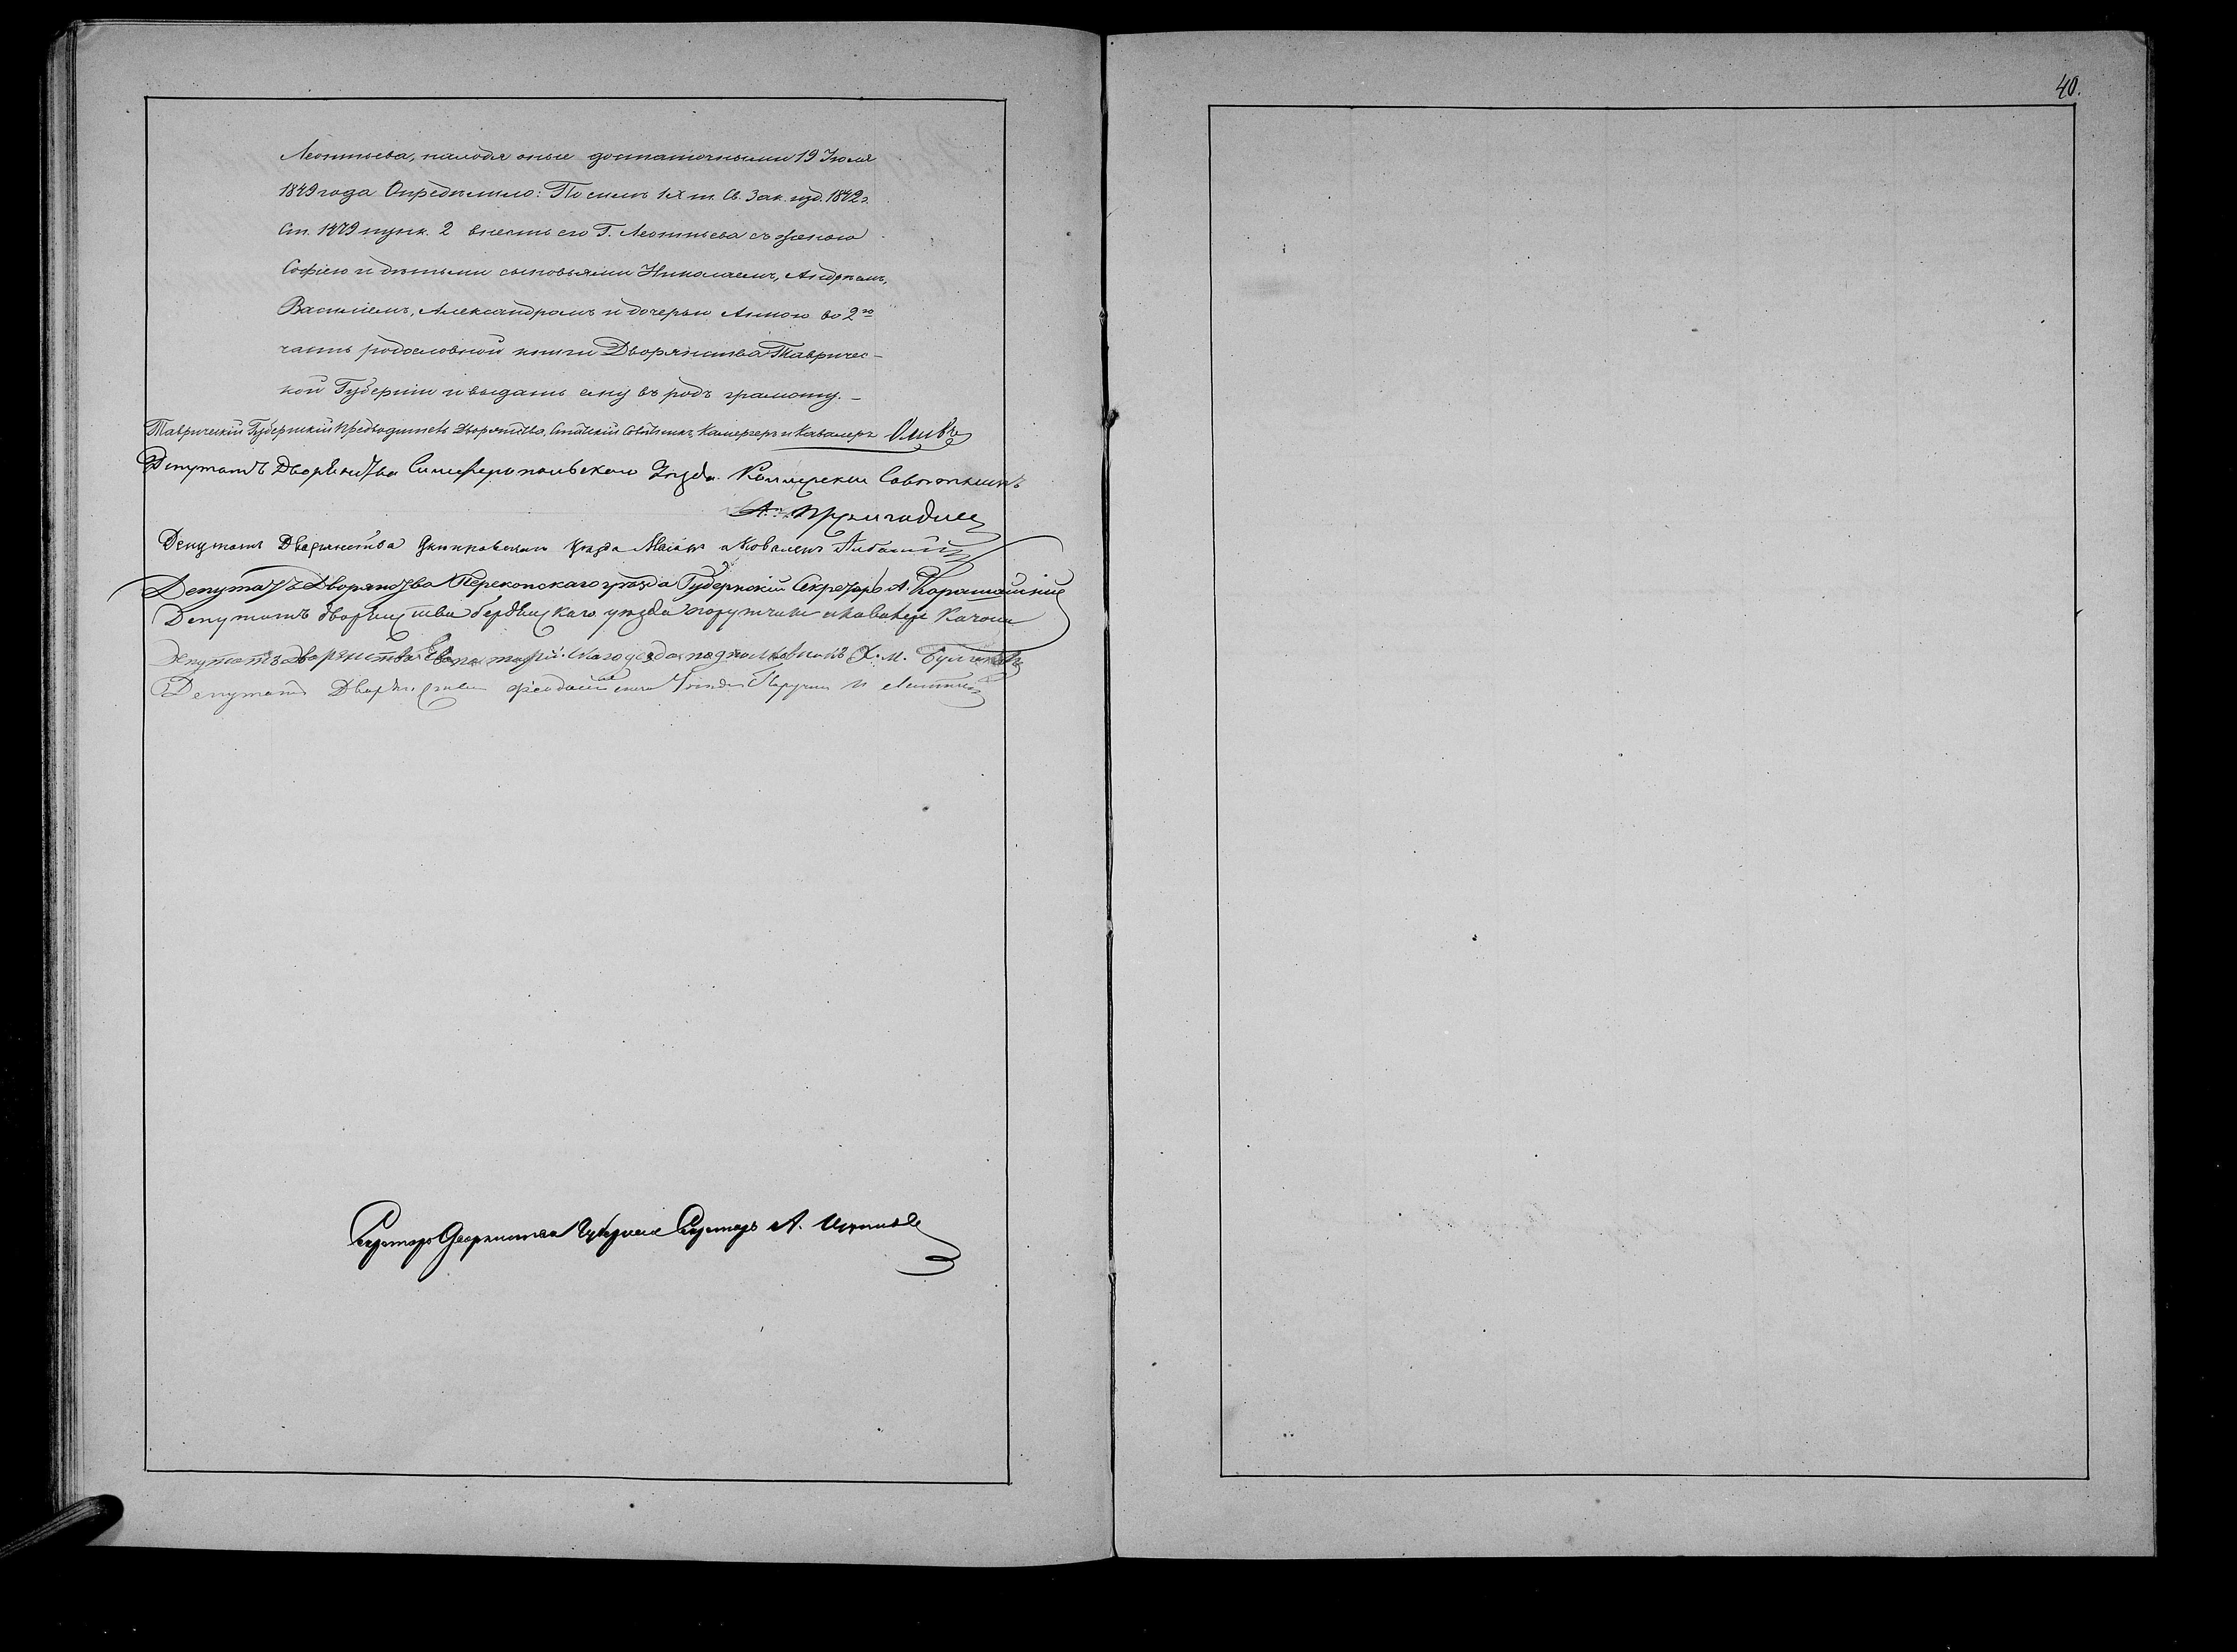 40.
Леонтьева, находя оные достаточными 19 Июля
1849 года Опредѣлило: По силѣ IX т. Св. Зак. изд. 1842 г.
Ст. 1479 пунк. 2 внесть его Г. Леонтьева съ женою
Софіею и дѣтьми сыновьями Николаемъ, Андреемъ,
Василіемъ, Александромъ и дочерью Анною во 2ю
часть родословной книги Дворянства Тавричес-
кой Губерніи и выдать ему въ родъ грамоту. —
Таврическій Губернскій Предводитель Дворянства, Статскій Совѣтникъ, Камергеръ и Кавалеръ Оливъ
Депутатъ Дворянства Симферопольскаго Уѣзда Коллежскій Совѣтникъ
А.
Депутатъ Дворянства Днѣпровскаго уѣзда и Кавалеръ
Депутатъ Дворянства Перекопскаго уѣзда Губернскій Секретарь А.
Депутатъ дворянства бердянскаго уѣзда поручикъ и кавалеръ
Депутатъ Дворянства Евпаторійскаго уѣзда подполковникъ Х. М.
Депутатъ Дворянства Феодосійскаго Уѣзда Поручикъ
Секретарь Дворянства Губернскій Секретарь А.